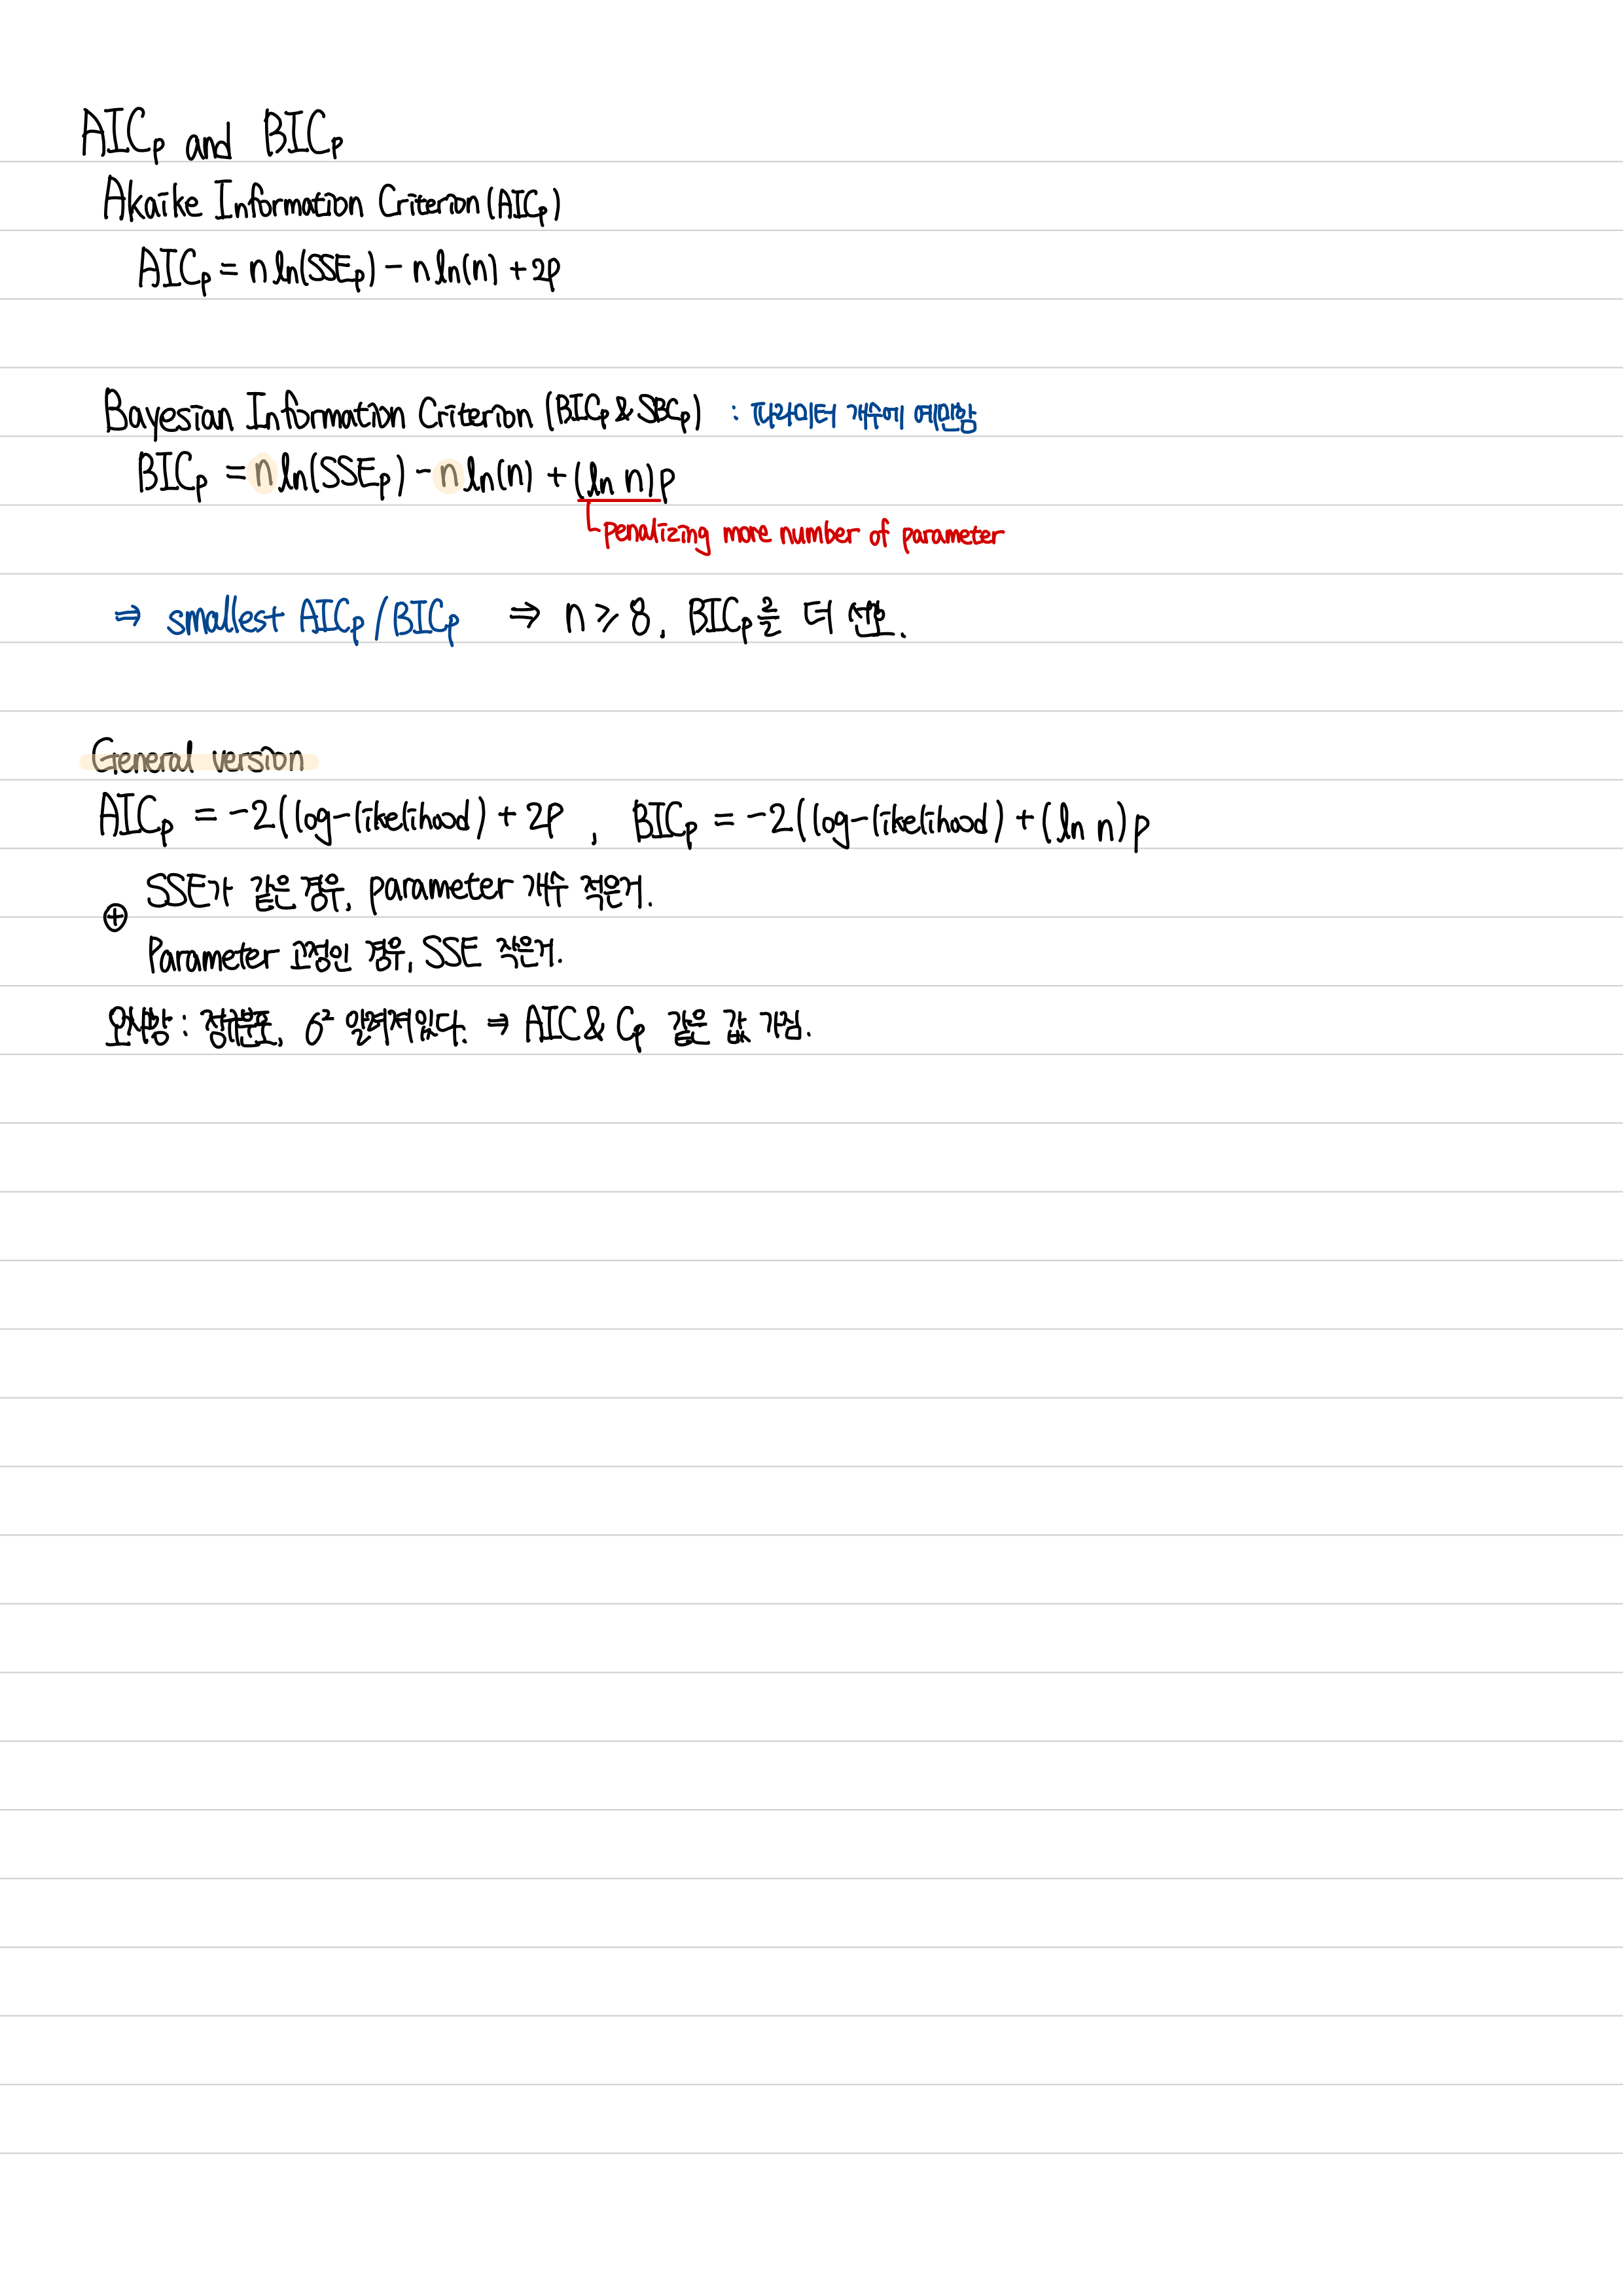 AICp and BICp
Akaike Information Criterion (AICp)
AICp = n ln(SSEp) - n ln(n) + 2p
Bayesian Information Criterion (BICp & SBCp) : 파라미터 개수에 예민함
BICp = n ln(SSEp) - n ln(n) + (ln n)p
penalizing more number of parameter
⇒ smallest AICp / BICp ⇒ n ≥ 8, BICp을 더 선호.
General version
AICp = -2(log-likelihood) + 2p , BICp = -2(log-likelihood) + (ln n)p
⊕ SSE가 같은 경우, parameter 개수 적은거.
Parameter 고정인 경우, SSE 작은거.
오차항 : 정규분포, σ² 알려져있다. ⇒ AIC & Cp 같은 값 가짐.